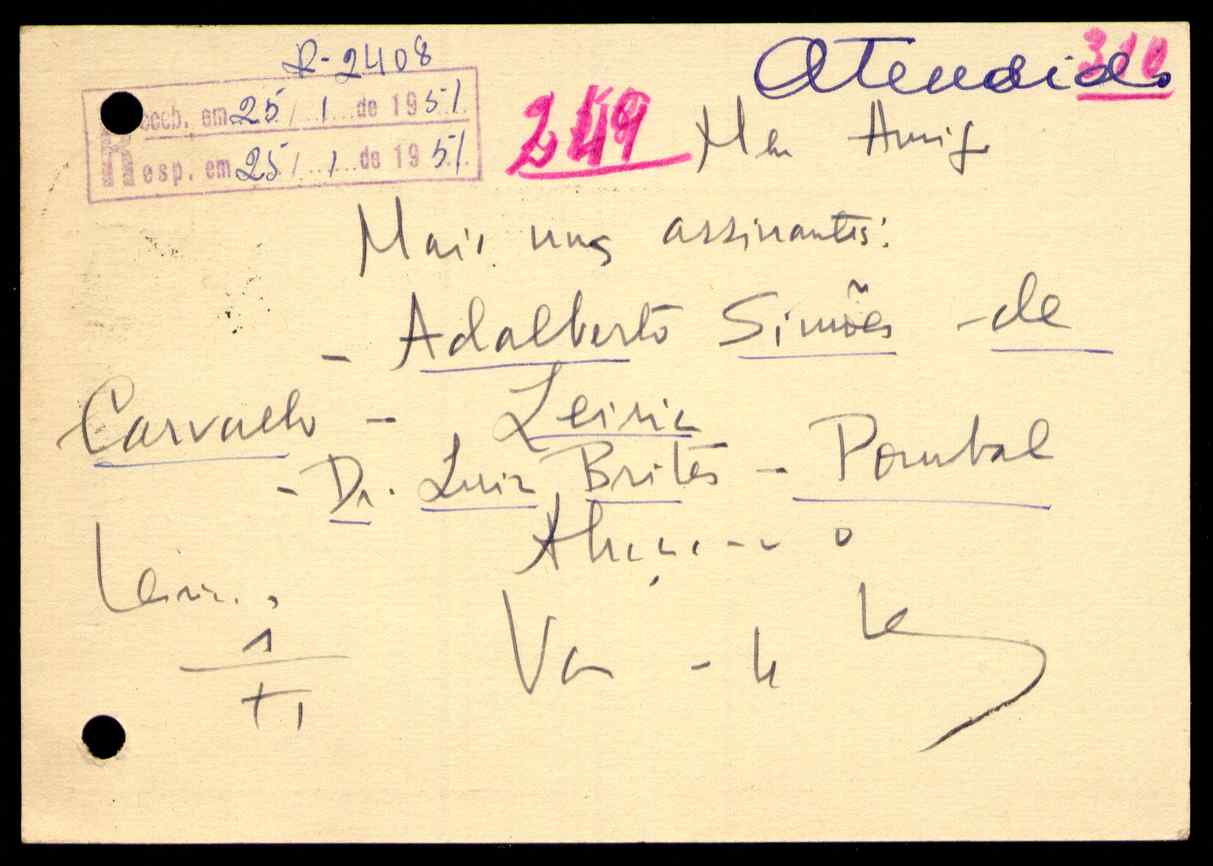 R-2408
Receb. em 25 / 1 de 1951
Resp. em 25 / 1 de 1951
Atendido
310
249
Meu Amigo
Mais uns assinantes:
- Adalberto Simões de
Carvalho - Leiria
- Dr. Luiz Brites - Pombal
Leiria,